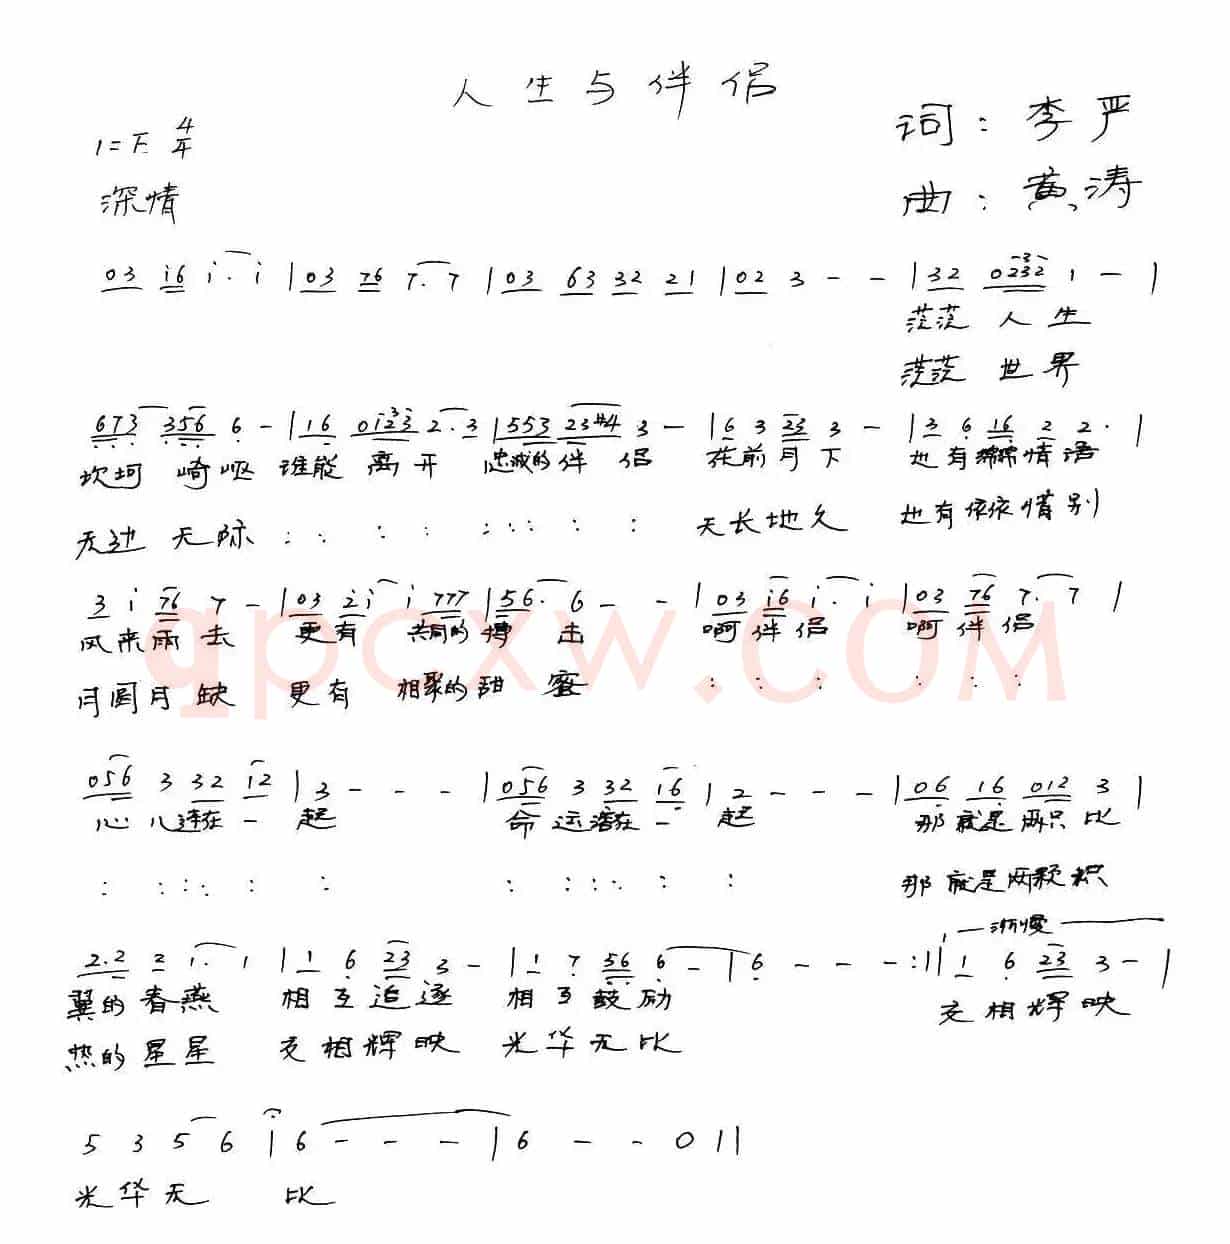 人生与伴侣
词：李严
1=F 4/4
曲：黄涛
深情
03 i6 i. i | 03 76 7. 7 | 03 63 32 21 | 02 3 - - | 32 0232 1 - |
茫茫 人 生
茫茫 世 界
673 356 6 - | 16 0123 2. 3 | 553 23#4 3 - | 6 3 23 3 - | 3 6 16 2 2. |
坎坷 崎岖 谁能 离开 忠诚的伴 侣 花前月下 也有绵绵情语
无边 无际 : : : : : : : : : 天长地久 也有依依惜别
3 i 76 7 - | 03 2i i 777 | 56. 6 - - | 03 i6 i. i | 03 76 7. 7 |
风来雨去 更有 共同的搏 击 啊伴侣 啊伴侣
月圆月缺 更有 相聚的甜 蜜 : : : : : :
056 3 32 12 | 3 - - - | 056 3 32 16 | 2 - - - | 06 16 012 3 |
心儿连在一 起 命运潜在一 起 那就是两只比
: : : : : : : : : : : : 那就是两颗炽
渐慢
2.2 2 1. 1 | 1 6 23 3 - | 1 7 56 6 - | 6 - - - :|| 1 6 23 3 - |
翼的春燕 相互追逐 相互鼓励 交相辉映
热的星星 交相辉映 光华无比
5 3 5 6 | 6 - - - | 6 - - 0 ||
光华无 比
qpcxw.COM